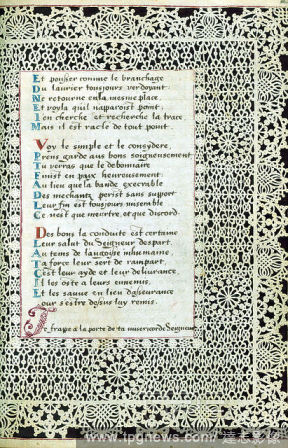 Et pousser comme le branchage
Du laurier tousjours verdoyant:
Ne retourne en la mesme place,
Et voyla quil n'apparoist point,
I'en cherche et recherche la trace
Mais il est racle de tout point.
Voy le simple et le considere,
Prens garde aus bons soigneusement
Tu verras que le debonnaire
Finist en paix heureusement:
Au lieu que la bande execrable
Des mechantz perist sans support
Leur fin est tousjours miserable
Ce n'est que meurtre, et que discord.
Des bons la conduite est certaine
Leur salut du Seigneur despart.
Au tems de l'angoisse inhumaine,
La force leur sert de rampart,
C'est leur ayde et leur delivrance,
Il les oste a leurs ennemis,
Et les sauve en lieu d'asseurance
Pour s'estre desus luy remis.
Je frape a la porte de ta misericorde Seigneur
www.tpgnews.com 達志影像